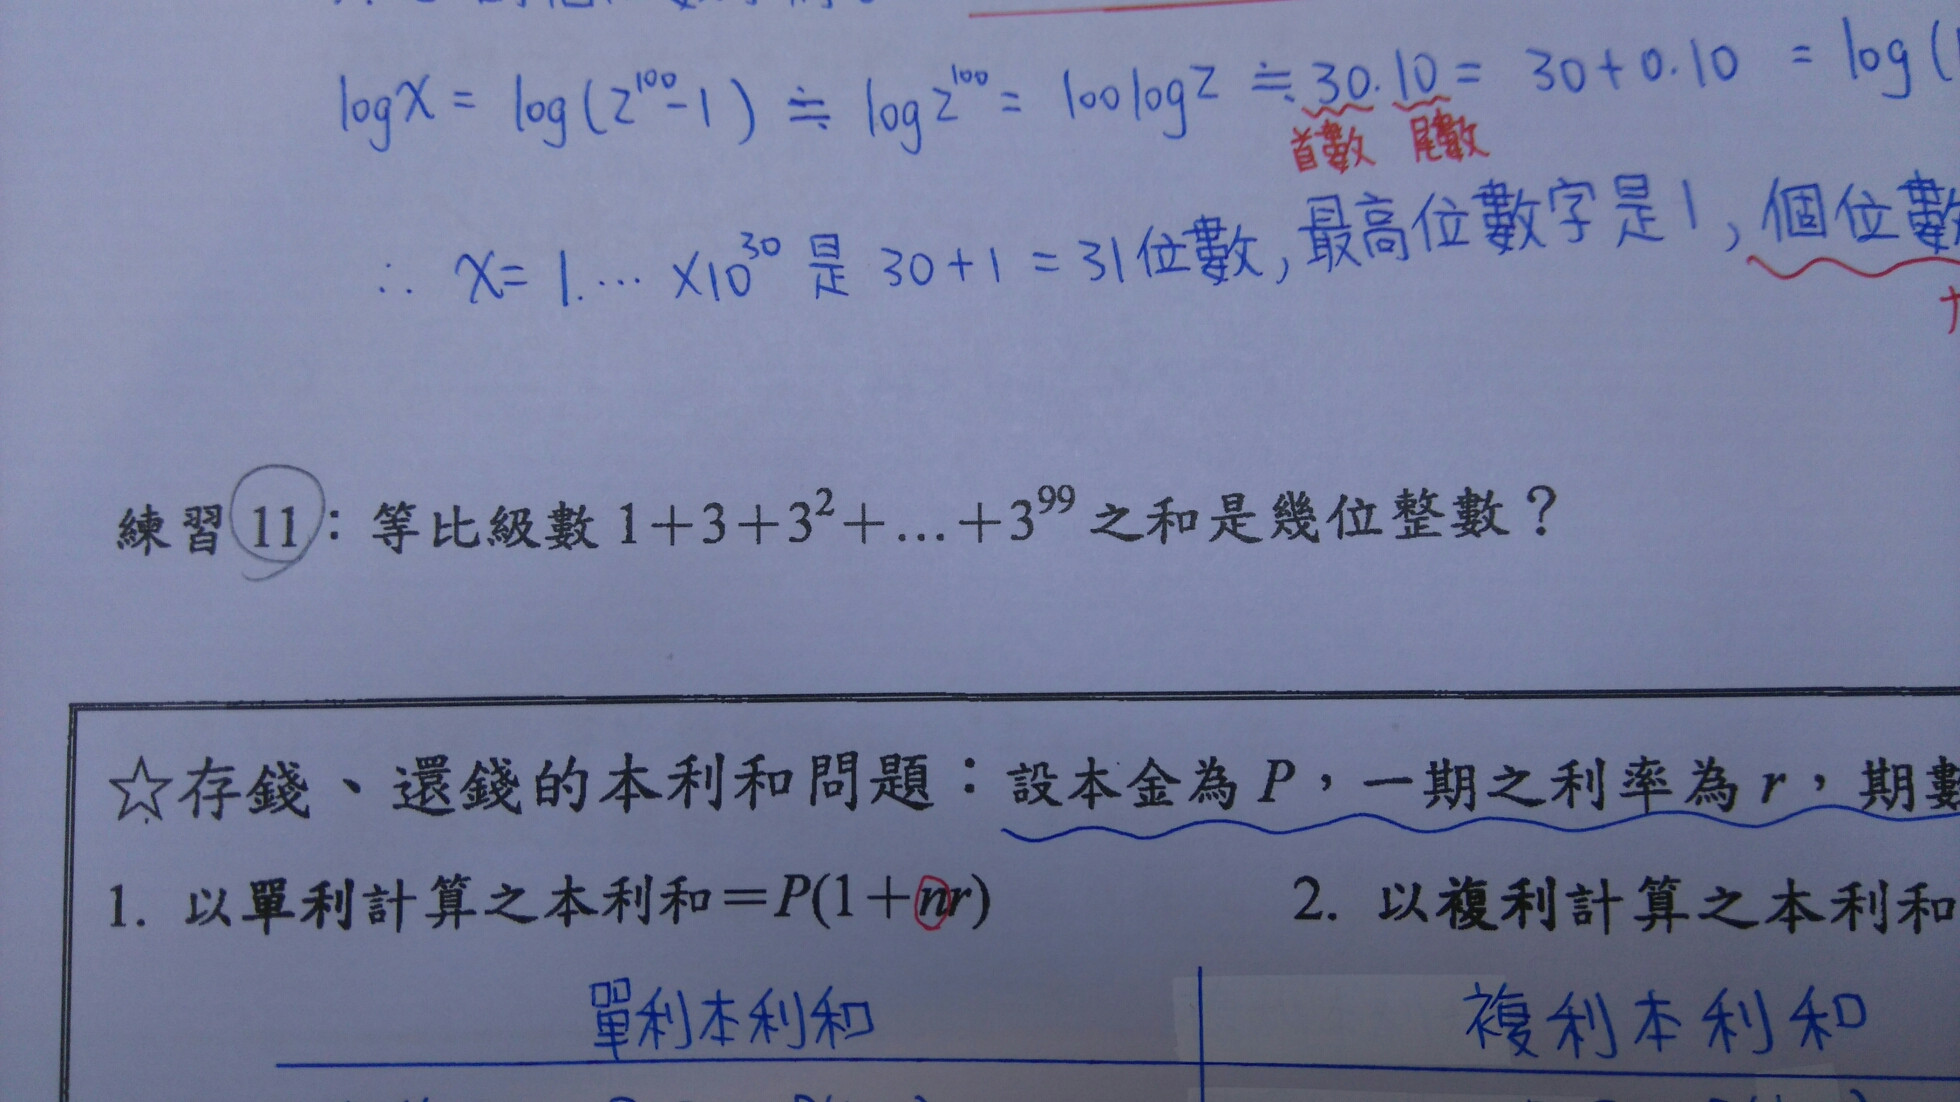 logx = log(2^100-1) ≒ log2^100 = 100log2 ≒ 30.10 = 30+0.10 = log(
首數 尾數
∴ x= 1.… ×10^30 是 30+1 = 31位數, 最高位數字是1, 個位數
練習11:等比級數 1+3+3²+…+3^99 之和是幾位整數?
☆存錢、還錢的本利和問題:設本金為 P,一期之利率為 r,期數
1. 以單利計算之本利和=P(1+nr) 2. 以複利計算之本利和
單利本利和 複利本利和